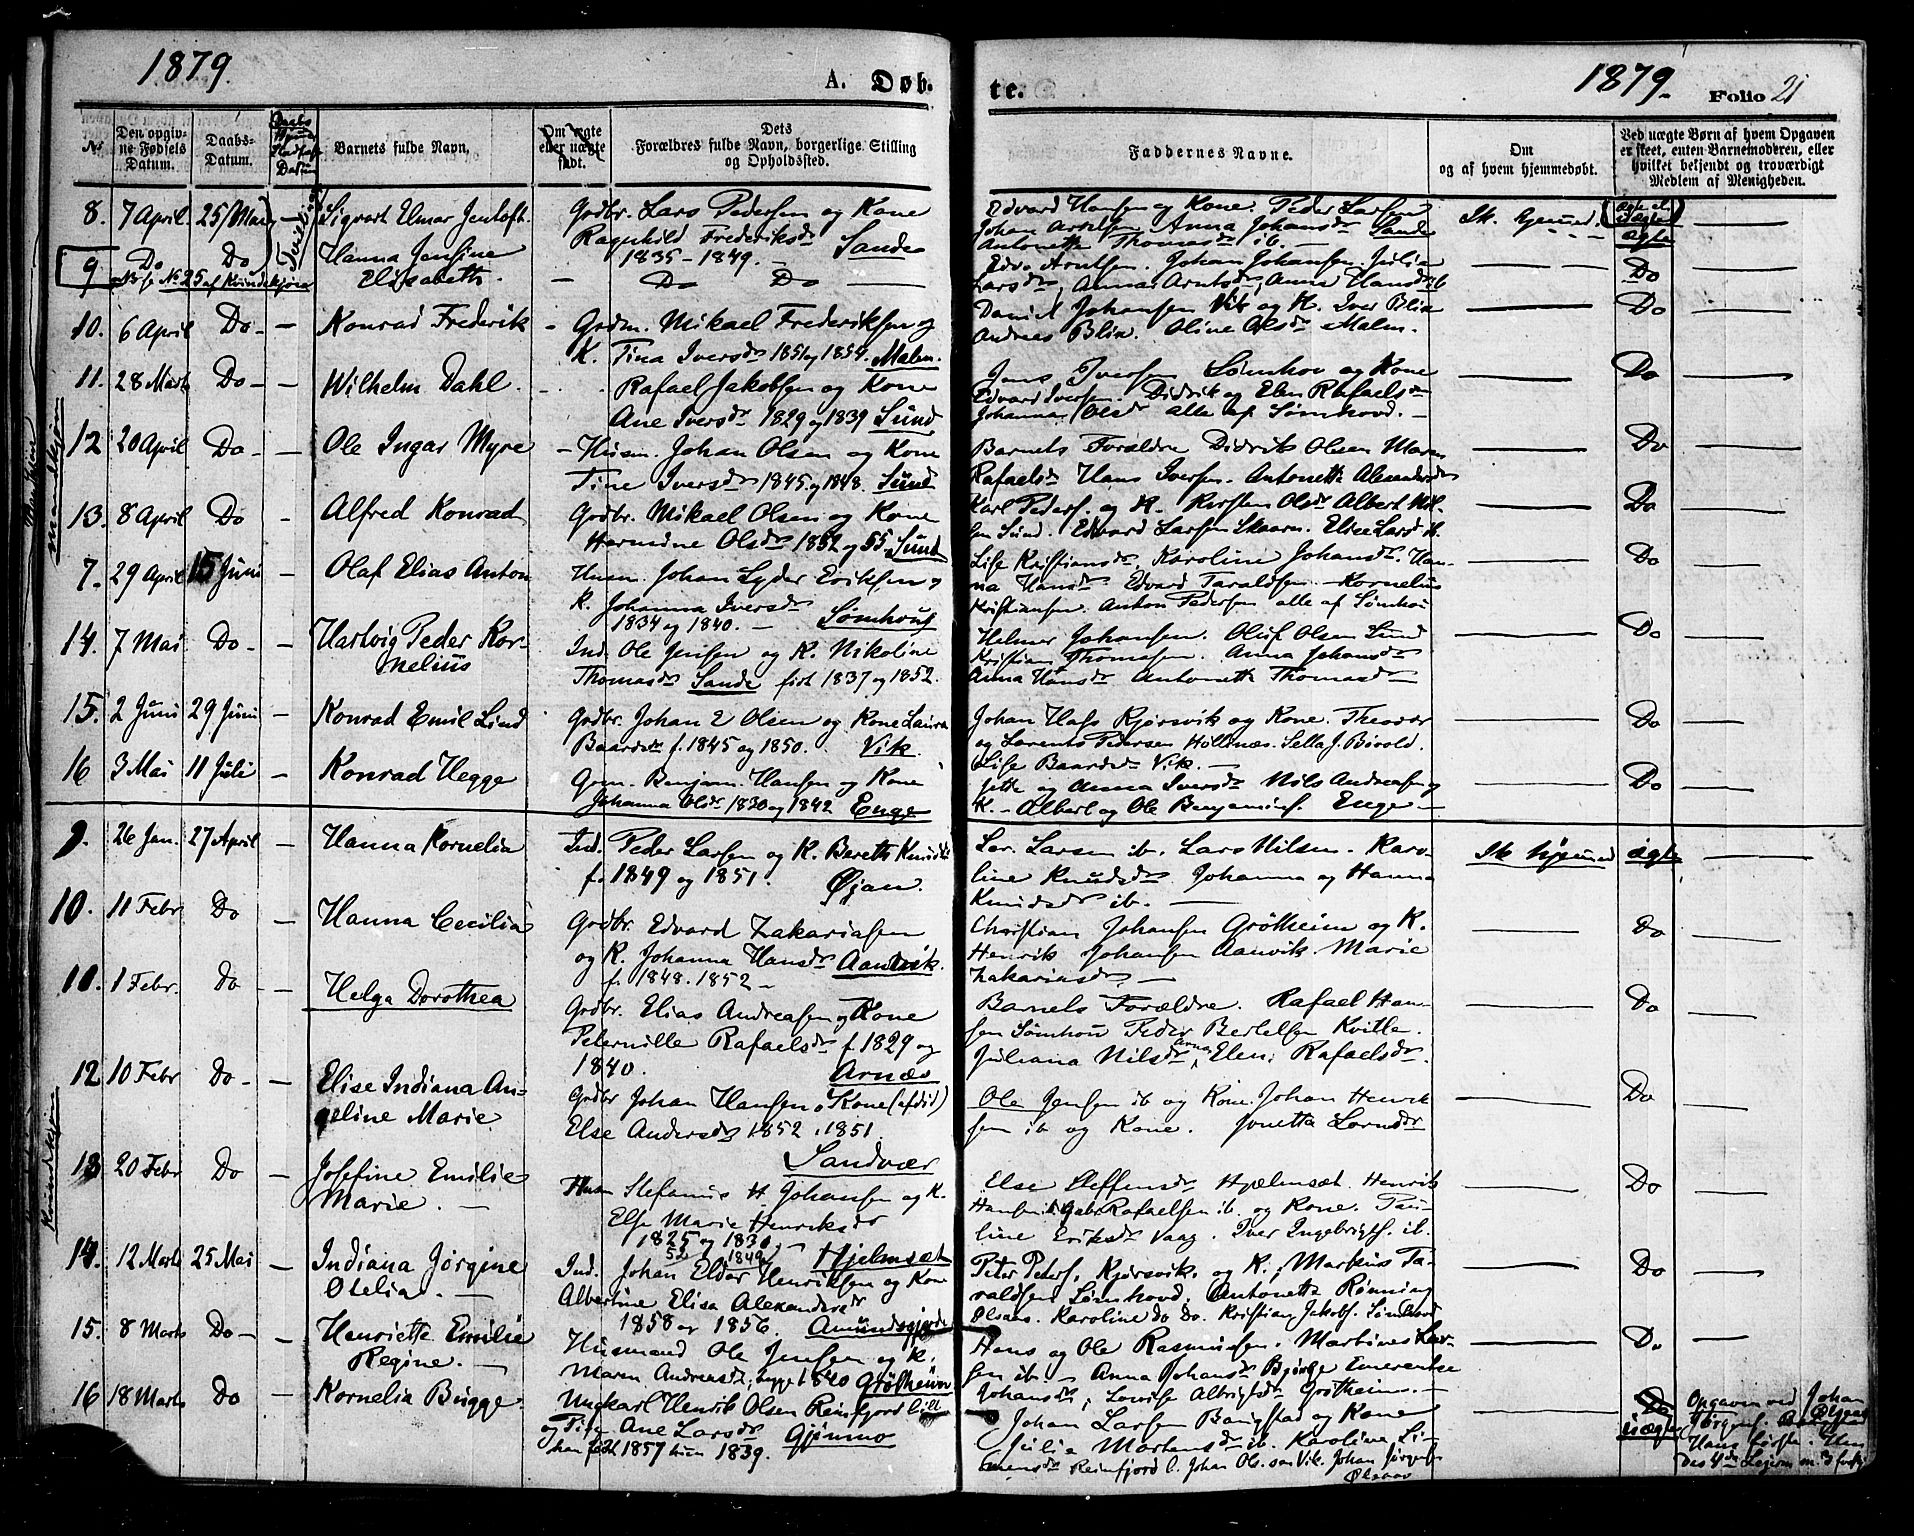 1879.
A. Døb.
te.
1879.
Folio 21
No
Den opgivne Fødsels Datum.
Daabs-Datum.
Barnets fulde Navn,
Om ægte eller uægte født.
Dets Forældres fulde Navn, borgerlige Stilling og Opholdssted.
Faddernes Navne.
Om og af hvem hjemmedøbt.
Ved uægte Børn af hvem Opgaven er skeet, enten Barnemoderen, eller hvilket bekjendt og troværdigt Medlem af Menigheden.
Mandkjøn
8. 7 April. 25 Mai Sigvart Elmar Jentoft. Gdbr. Lars Pedersen og Kone
Ragnhild Frederiksdr Sande
1835 - 1849.
Edvard Hansen og Kone. Peder Larsen
Johan Anna Johansdr Sande
Antonette Thomasdr ib.
ægte
9 Do Do Hanna Jensine
Elisabeth. Do Do
No 25 af Kvindekjøn
Edv. Arntsen. Johan Johansen. Julia
Larsdr, Anna Arntsdr, Anna Hansdr ib
Do
10. 6 April Do - Konrad Frederik - Gdm. Mikael Frederiksen og
K. Tina Iversdr 1851 og 1854. Malm.
Daniel Johansen Vik og K. Iver Blix
Andreas Blix. Oline Olsdr Malm.
Do
11. 28 Marts Do - Wilhelm Dahl - Rafael Jakobsen og Kone
Ane Iversdr 1829 og 1839 Sund
Jens Iversen Sømhov og Kone
Edvard Iversen. Didrik og Elen Rafaelsdr
Johanna Olsdr alle af Sømhovd.
Do
12 20 April Do - Ole Ingar Myre - Husm. Johan Olsen og Kone
Tine Iversdr 1845 og 1848. Sund
Barnets Forældre Didrik Olsen Maren
Rafaelsdr Hans Iversen. Antonette Alexandersdr
Do
13. 8 April Do - Alfred Konrad Gdbr. Mikael Olsen og Kone
Hermine Olsdr 1852 og 55. Sund
Karl Peders. og K. Kirsten Olsdr Albert Nilsen
Sund. Edvard Larsen Skaarn. Elise Larsd ib.
Do
7. 29 April 15 Juni - Olaf Elias Anton Husm. Johan Lyder Eriksen og
K. Johanna Iversdr
1834 og 1840. - Sømhovd
Lise Kristiansdr, Karoline Johansdr. Hanna
Hansdr Edvard Taraldsen - Kornelius
Kristiansen. Anton Pedersen alle af Sømhov
Do
14. 7 Mai Do - Hartvig Peder Kornelius
Ind. Ole Jensen og K. Nikoline
Thomasdr Sande født 1837 og 1852.
Helmer Johansen. Oluf Olsen Sund
Kristian Thomasen. Anna Johansdr
Anna Hansdr Antonette Thomasdr
Do
15. 2 Juni 29 Juni - Konrad Emil Lind Gdbr. Johan E Olsen og Kone Laura
Baardsdr f. 1845 og 1850. Vik.
Johan Kjørsvik og Kone. Theodor
og Lorents Pedersen Hollinæs. Sella J. Bivold.
Lise Baardsdr Vik.
Do
16 3 Mai 11 Juli - Konrad Hegge Gdm. Benjamin Hansen og Kone
Johanna Olsdr 1830 og 1842 Enge
Jette og Anna Iversdr Nils Andreasen og
K. - Albert og Ole Benjamins. Enge -
Do
Kvindekjøn
9. 26 Jan. 27 April Hanna Kornelia Ind. Peder Larsen og K. Bereth Knudsdr
f. 1849 og 1851. Øjan.
Lor. Larsen ib. Lars Nilsen. Karoline
Knudsdr Johanna og Hanna
Knudsdr ib.
ægte
10. 11 Febr Do - Hanna Cecilia Gdbr. Edvard Zakariasen
og K. Johanna Hansdr Aanvik.
f. 1848. 1852 -
Christian Johansen Grøtheim og K.
Henrik Johansen Aanvik. Marie
Zakariasdr
Do
11. 1 Febr. Do - Helga Dorothea
Gdbr. Elias Andreasen og Kone
Peternille Rafaelsdr f. 1829 og
1840. Arnæs
Barnets Forældre. Rafael Hansen
Sømhov Peder Bertelsen Kvitle.
Juliana Nilsdr Arnæs, Elen Rafaelsdr.
Do
12 10 Febr Do - Elise Indiana Angeline
Marie
Gdbr Johan Hansen og Kone (afdød)
Else Andersdr 1852. 1851.
Sandvær
Ole Jensen ib og Kone. Johan Henriksen
ib og Kone. Jonetta Lorndr
Do
13 20 Febr Do - Josefine Emilie
Marie. -
Husm Stefanus H Johansen og K.
Else Marie Henriksdr
1825 og 1830. Hjelmsæt
Else Steffensdr Hjælmsæt. Henrik
Hansen Gabr Rafaelsen ib. og Kone. Pauline
Eriksdr Vaag. Iver Ingebrigts. ib.
Do
14. 12 Marts 25 Mai - Indiana Jørgine
Otelia. -
Ind. Johan Eldor Henriksen og Kon
Albertine Elisa Alexandersdr
1858 og 1856. Amundsgjorde
Peter Peders. Kjørsvik. og K., Markus Taraldsen
Sømhovd. Antonette Rønning
Olsdr. Karoline Do Do. Kristian Jakobs. Sømhovd
Do
15. 8 Marts Do - Henriette Emilie
Regine. -
Husmand Ole Jensen og K.
Maren Andreasdr, begge f. 1840 Grøtheim
Hans og Ole Rasmussen. Martines Larsen
ib - Anna Johansdr Bjørge Emerentse
Johansdr, Lovise Albrigtsdr Grøtheim. -
Do
16 18 Marts Do - Kornelia Bugge. Ungkarl Henrik Olsen Reinfjord
og Pige Ane Larsdr
han født 1857 hun 1839. Gjønmo
Johan Larsen Bangstad og Kone
Julia Martensdr ib. Karolina
Reinfjord. Johan Olsen Vik. Johan Jørgens
Do
uægte
Opgaven ved Johan
Hans første. Hendes
4de Leierm.